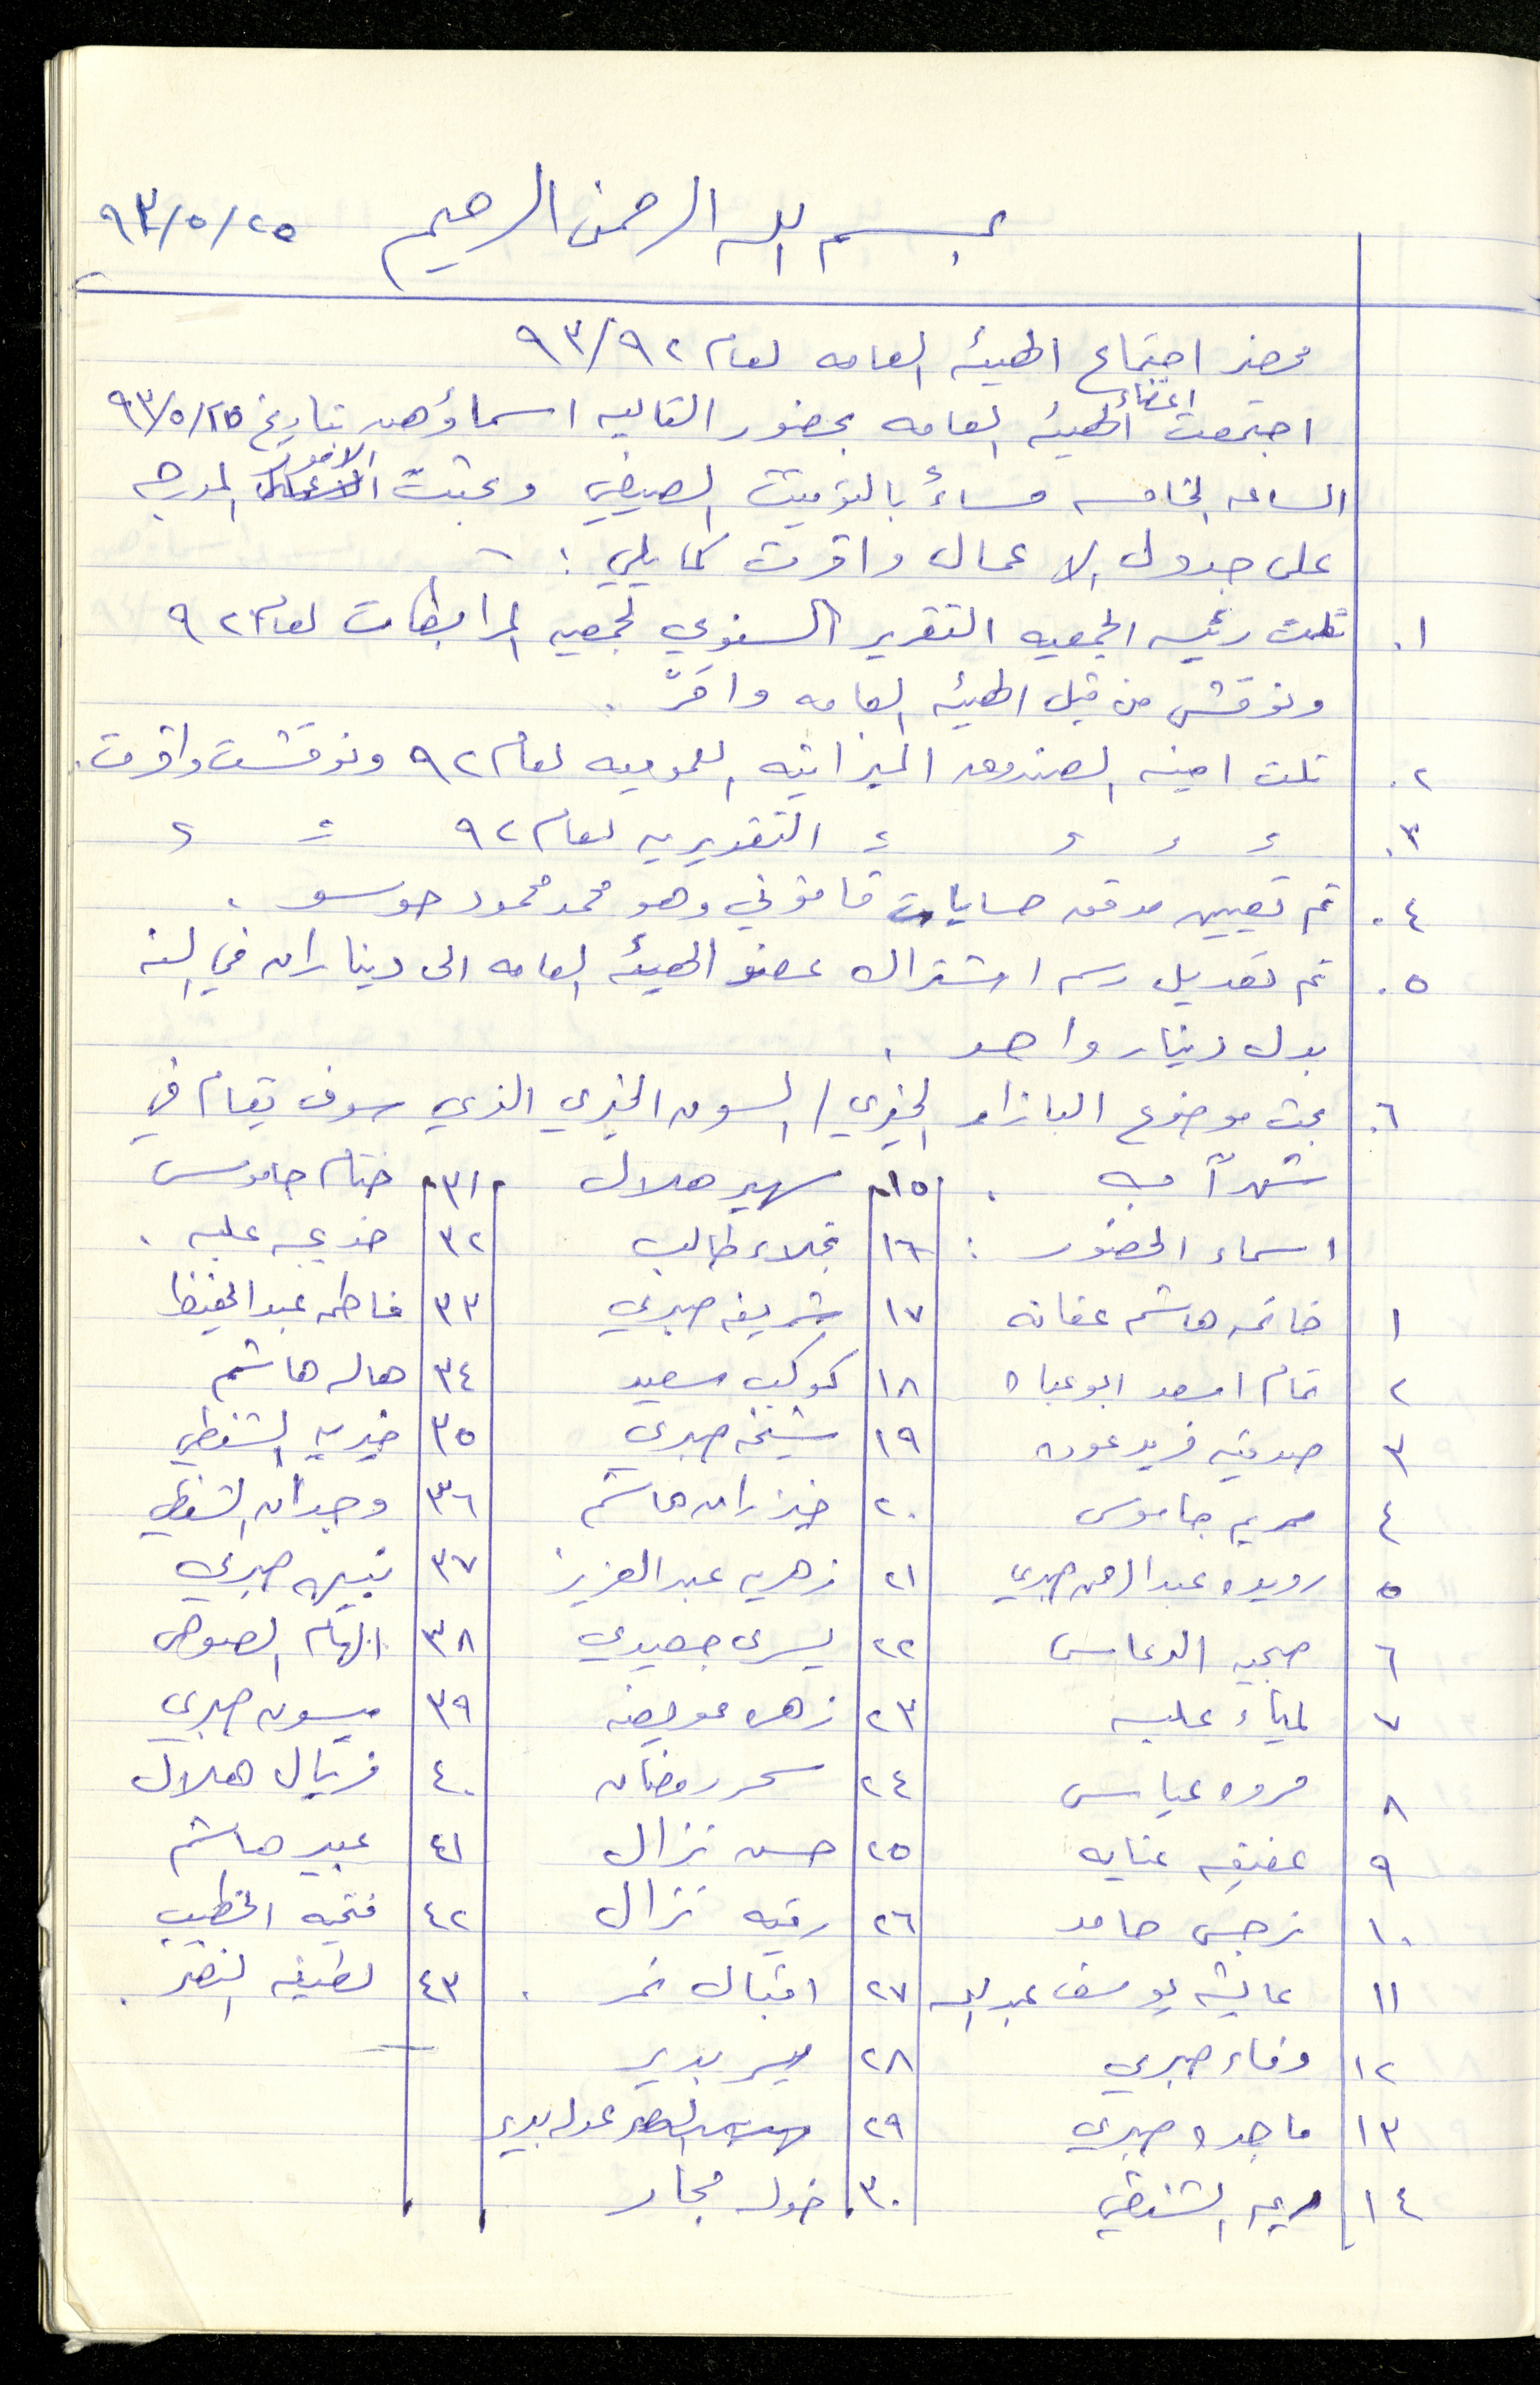 بسم الله الرحمن الرحيم ٩٣/٥/٢٥
محضر اجتماع الهيئه العامه لعام ٩٣/٩٢
اجتمعت اعضاء الهيئه العامه بحضور التاليه اسماؤهن بتاريخ ٩٣/٥/٢٥
الساعه الخامسه مساءً بالتوقيت الصيفي وبحثت الامور المدرجه
على جدول الاعمال واقرت كما يلي :-
١. تلت رئيسه الجمعيه التقرير السنوي لجمعيه المرابطات لعام ٩٢
ونوقش من قبل الهيئه العامه واقرّ .
٢. تلت امينه الصندوق الميزانيه العموميه لعام ٩٢ ونوقشت واقرت .
٣. ء ء ء ء التقديريه لعام ٩٢ ء ء
٤. تم تعيين مدقق حسابات قانوني وهو محمد محمود حوسو .
٥. تم تعديل رسم اشتراك عضو الهيئه العامه الى ديناران في السنه
بدل دينار واحد .
٦. بحث موضوع البازار الخيري / السوق الخيري الذي سوف يقام في
شهر آب . ١٥ سهير هلال ٣١ ختام جاموس
اسماء الحضور : ١٦ نجلاء طالب ٣٢ خديجه علبه .
١ خاتمه هاشم عفانه ١٧ شريفه صبري ٣٣ فاطمه عبد الحفيظ
٢ تمام اسعد ابو عباه ١٨ كوكب سعيد ٣٤ هاله هاشم
٣ صدقيه فريد عوده ١٩ شيخه صبري ٣٥ خيريه الشنطي
٤ مريم جاموس ٢٠ خيزران هاشم ٣٦ وجدان الشنطي
٥ رويده عبد الرحمن صبري ٢١ زهريه عبد العزيز ٣٧ نبيهه صبري
٦ صبحيه الدعاس ٢٢ يسرى جعيدي ٣٨ الهام الصوص
٧ لمياء علبه ٢٣ زهره عويضه ٣٩ ميسون صبري
٨ مروه عباس ٢٤ سحر رمضان ٤٠ فريال هلال
٩ عفيفه عنايه ٢٥ حسن نزال ٤١ عبير هاشم
١٠ نرجس حامد ٢٦ رقيه نزال ٤٢ فتحيه الخطيب
١١ عايشه يوسف عبد الله ٢٧ اقبال نمر . ٤٣ لطيفه النضر .
١٢ وفاء صبري ٢٨ بدير
١٣ ماجده صبري ٢٩ بدير
١٤ ريمه الشنطي ٣٠ خوله مجار